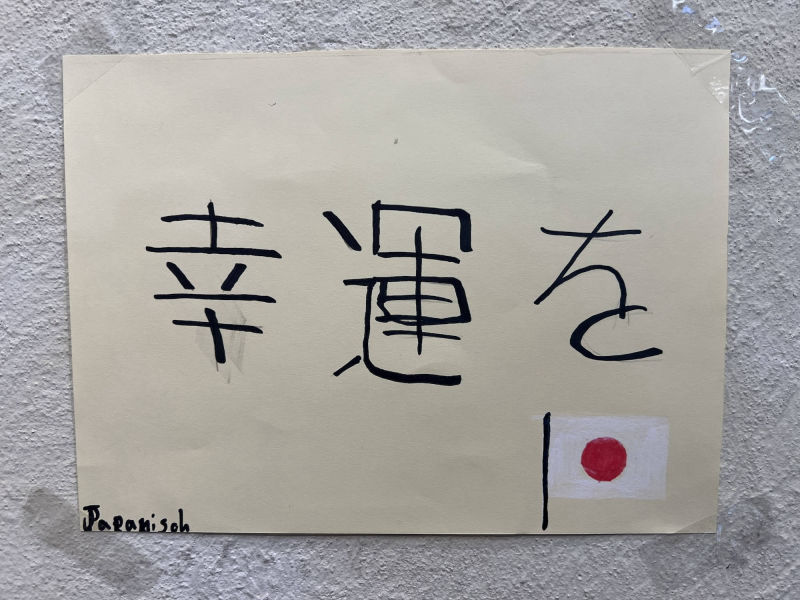 幸運を
Japanisch